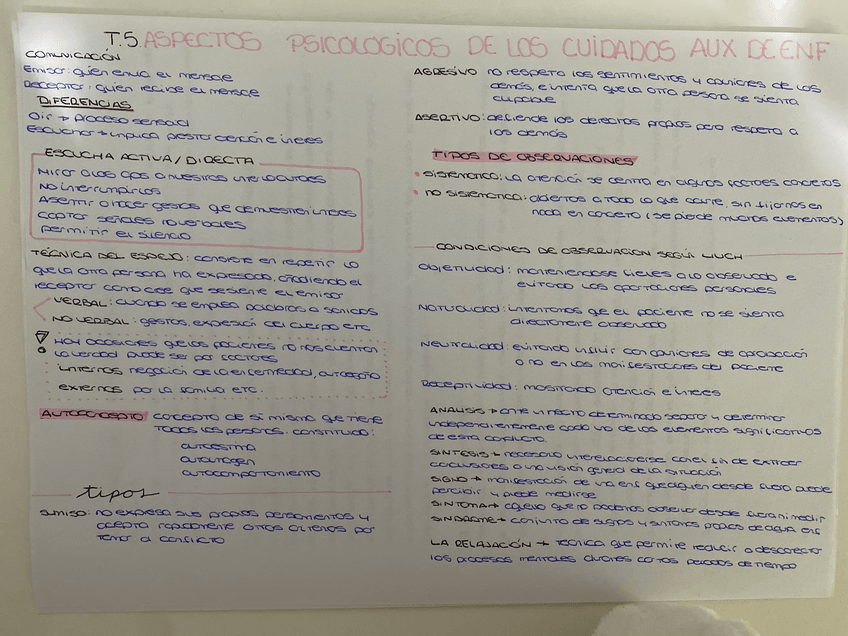 T.5. ASPECTOS PSICOLOGICOS DE LOS CUIDADOS AUX DE ENF
COMUNICACIÓN
Emisor: quien envia el mensaje
Receptor: quien recibe el mensaje
DIFERENCIAS
Oir → proceso sensorial
Escuchar → implica prestar atención e interes
ESCUCHA ACTIVA / DIRECTA
Mirar a los ojos a nuestros interlocutores
No interrumpirlos
Asentir o hacer gestos que demuestren interes
captar señales no verbales
permitir el silencio
TÉCNICA DEL ESPEJO: consiste en repetir lo
que la otra persona ha expresado, el
receptor como cree que se siente el emisor
VERBAL: cuando se emplea palabras o sonidos
NO VERBAL: gestos, expresión del cuerpo etc
Hay ocasiones que los pacientes no nos cuentan
la verdad puede ser por factores
internos negación de la enfermedad,
externos por la familia etc.
AUTOCONCEPTO concepto de si mismo que tiene
todas las personas. constituido:
autoestima
autoimagen
autocomportamiento
tipos
SUMISO: no expresa sus propios pensamientos y
acepta otros criterios por
temor al conflicto
AGRESIVO no respeta los sentimientos y opiniones de los
demás, e intenta que la otra persona se sienta
culpable
ASERTIVO: defiende los derechos propios pero respeta a
los demás
TIPOS DE OBSERVACIONES
SISTEMATICA: la atención se centra en algunos factores concretos
NO SISTEMATICA: abiertos a todo lo que ocurre, sin fijarnos en
nada en concreto (se pierde muchos elementos)
CONDICIONES DE OBSERVACION SEGÚN LLUCH
Objetividad: manteniendose fieles a lo observado e
evitando las aportaciones personales
Naturalidad: intentamos que el paciente no se sienta
directamente observado
Neutralidad: evitando influir con opiniones de aprobación
o no en las manifestaciones del paciente
Receptividad: mostrando atención e interes
ANALISIS → ante un hecho determinado separar y determinar
independientemente cada uno de los elementos significativos
de esta conflicto.
SINTESIS → necesario interrelacionarse con el fin de extraer
conclusiones o una visión general de la situación
SIGNO → manifestación de una enf que alguien desde fuera puede
percibir y puede medirse
SINTOMA → aquello que no podemos observar desde fuera ni medir
SINDROME → conjunto de signos y sintomas propios de alguna enf
LA RELAJACIÓN → técnica que permite reducir o desconectar
los procesos mentales durantes cortos periodos de tiempo